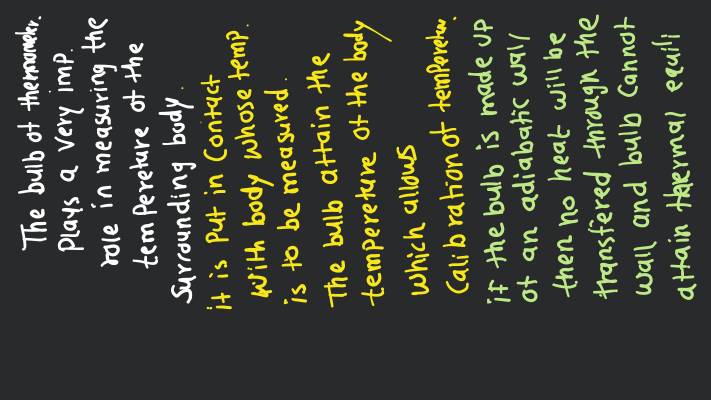 The bulb of thermometer.
plays a very imp.
role in measuring the
tempereture of the
surrounding body.
it is put in contact
with body whose temp.
is to be measured.
The bulb attain the
tempereture of the body
which allows
calibration of temperetur.
if the bulb is made up
of an adiabatic wall
then no heat will be
transfered through the
wall and bulb cannot
attain thermal equili